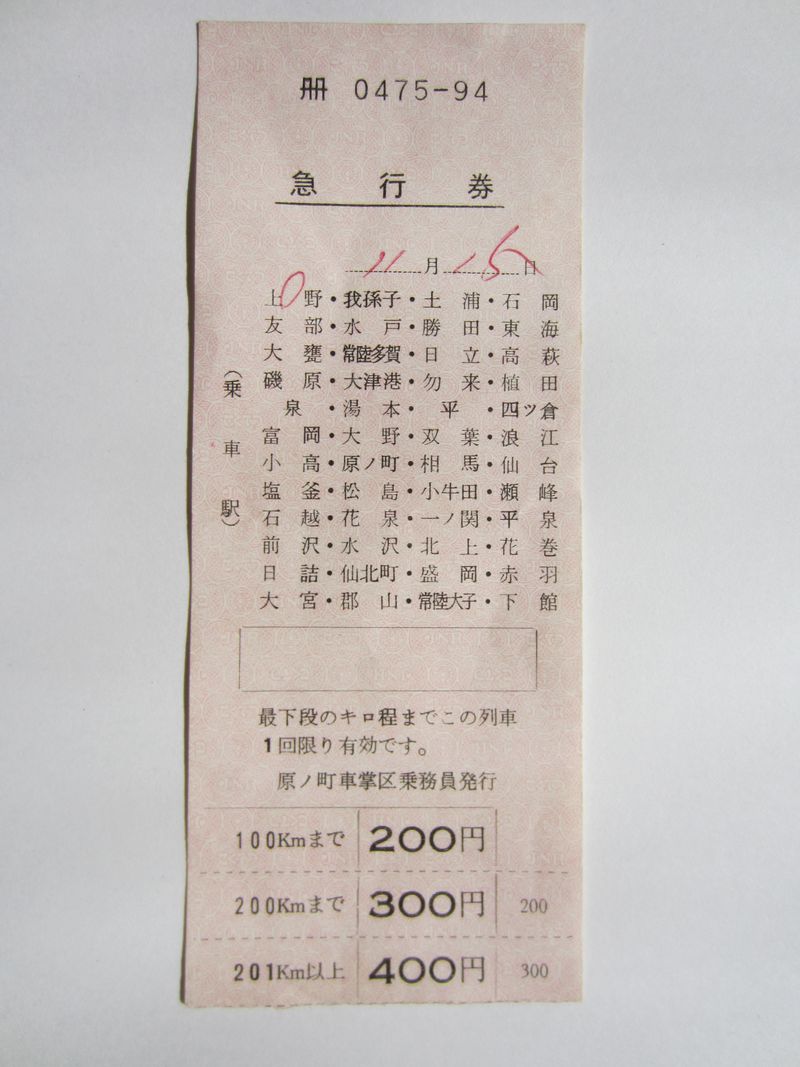 冊 0475-94
急行券
11月15日
上野・我孫子・土浦・石岡
友部・水戸・勝田・東海
大甕・常陸多賀・日立・高萩
磯原・大津港・勿来・植田
泉・湯本・平・四ツ倉
富岡・大野・双葉・浪江
小高・原ノ町・相馬・仙台
塩釜・松島・小牛田・瀬峰
石越・花泉・一ノ関・平泉
前沢・水沢・北上・花巻
日詰・仙北町・盛岡・赤羽
大宮・郡山・常陸大子・下館
(乗車駅)
最下段のキロ程までこの列車
1回限り有効です。
原ノ町車掌区乗務員発行
100Kmまで 200円
200Kmまで 300円 200
201Km以上 400円 300